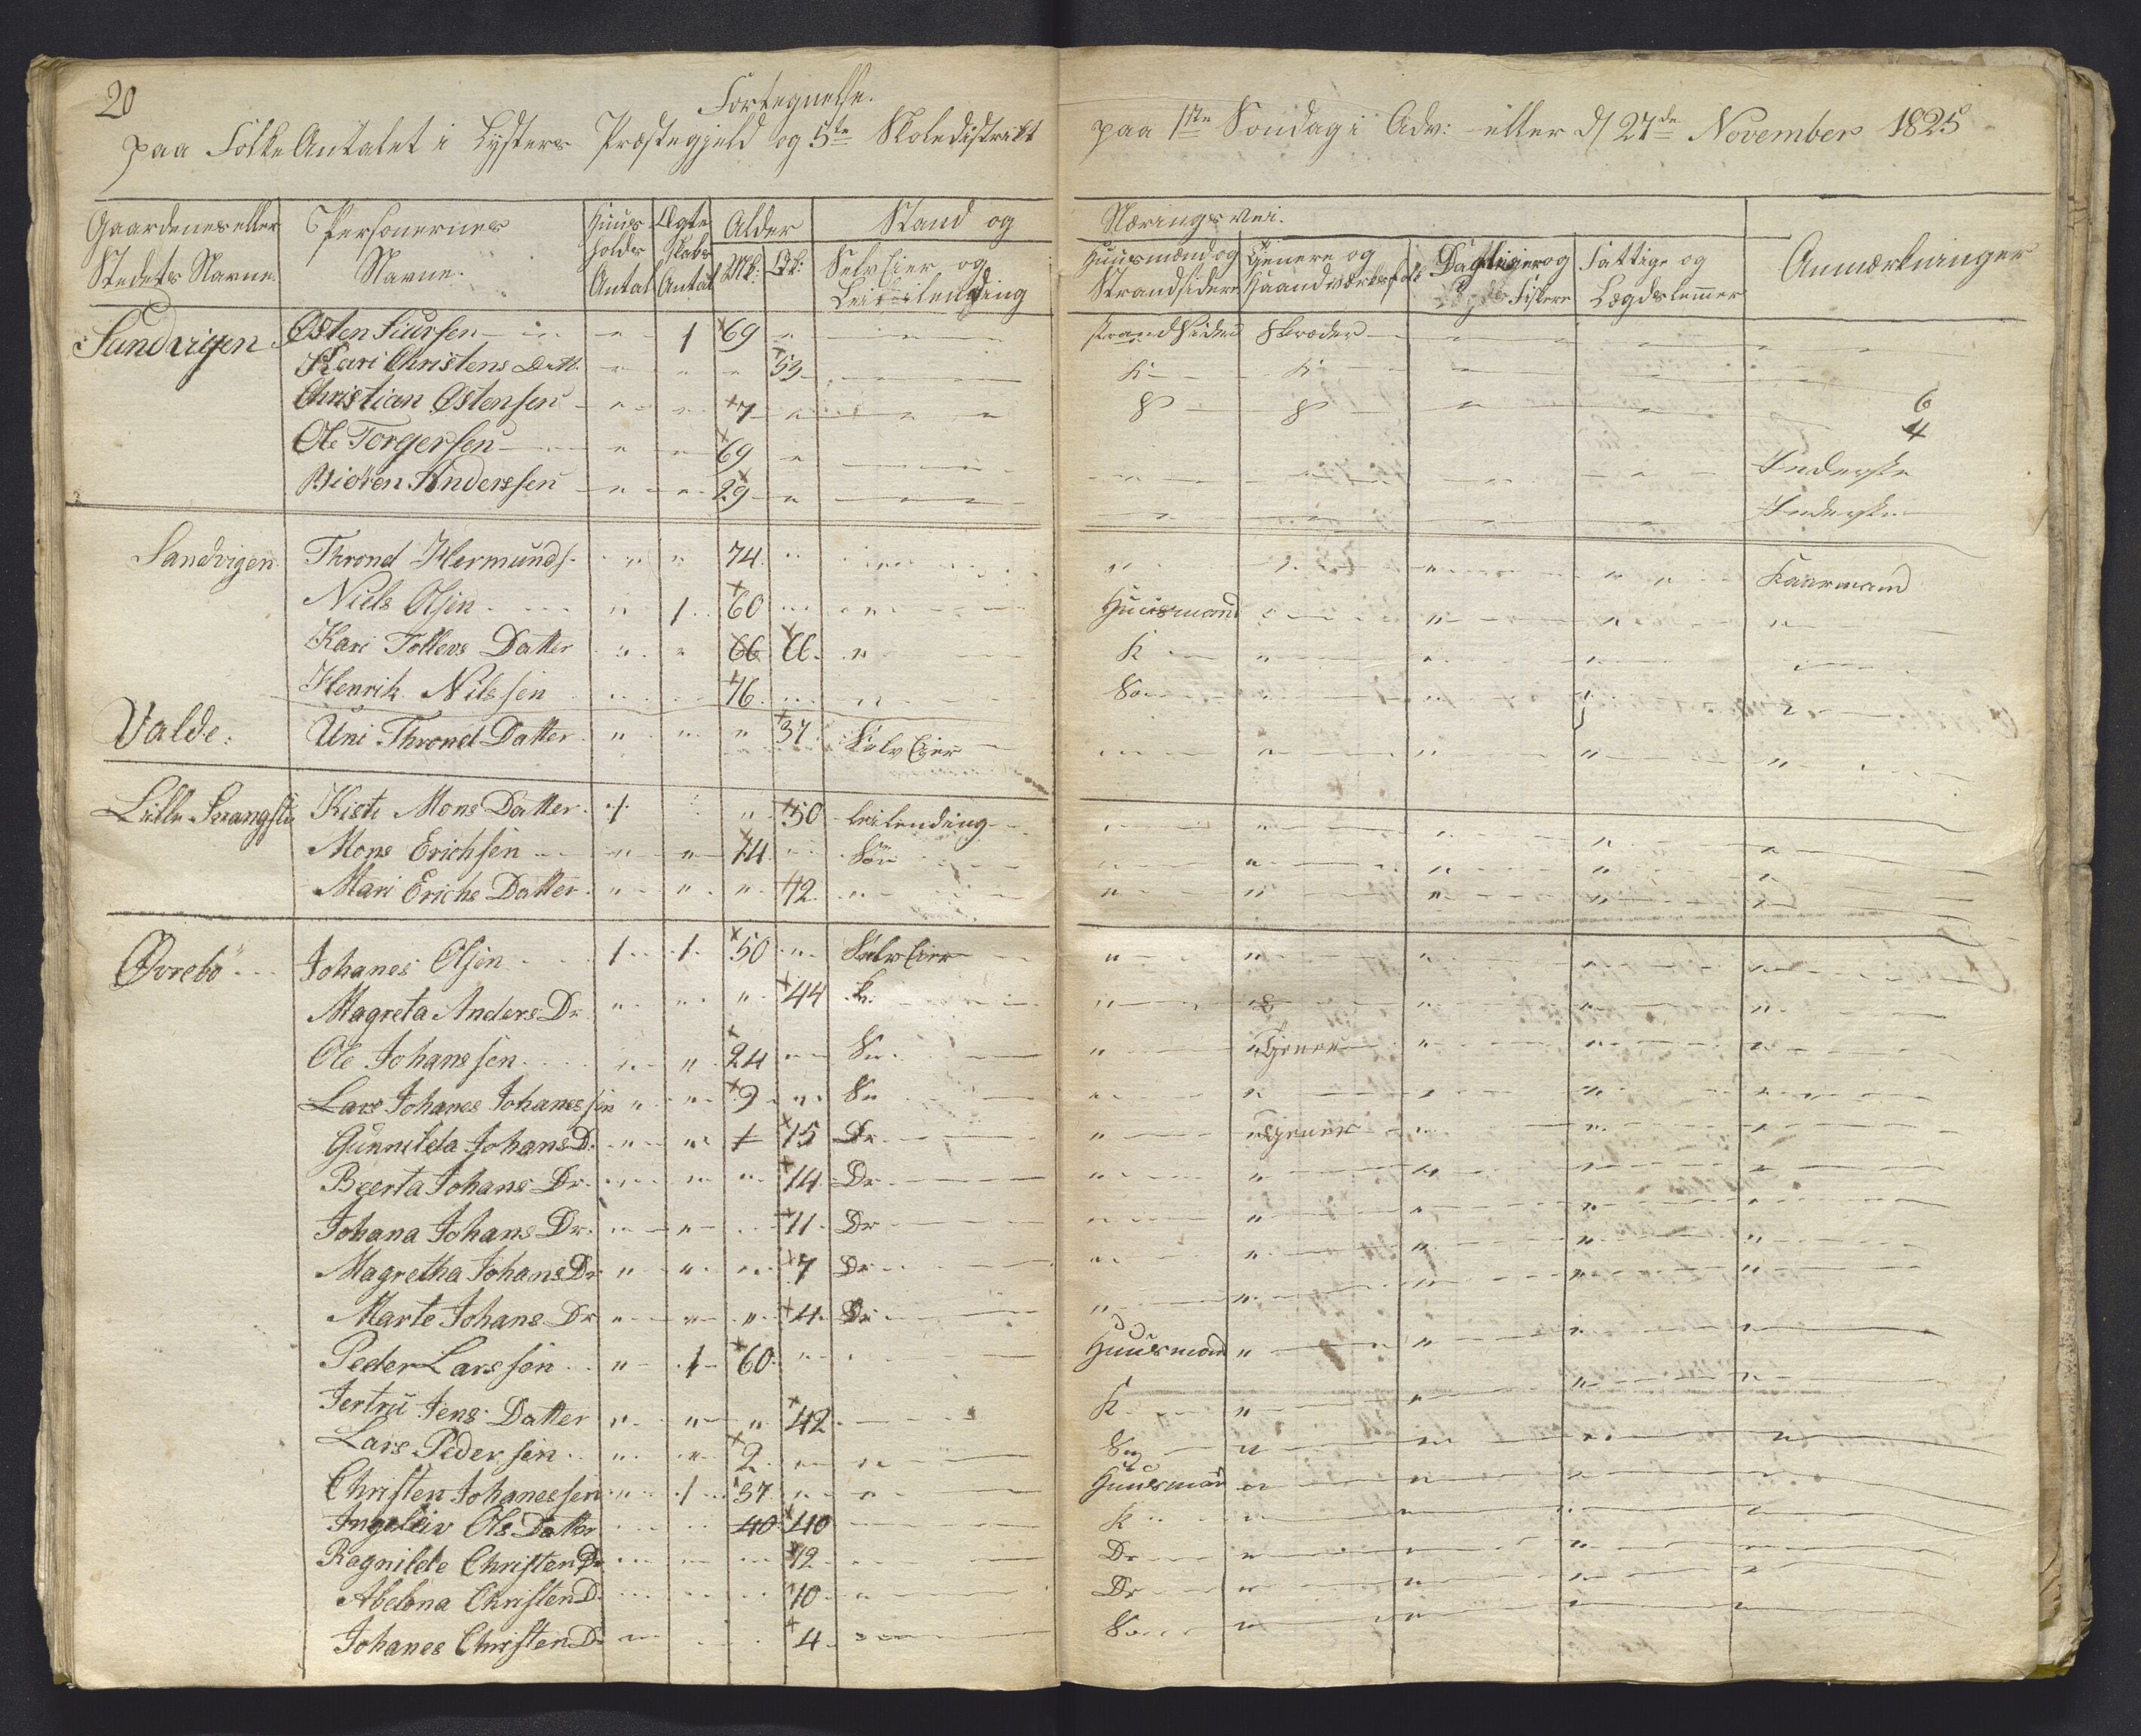 20
Fortegnelse.
paa Folke Antalet i Lysters Præstegjeld og 5te Skoledistrikt paa 1ste Søndag i Adv: eller d/ 27de November 1825
Gaardenes eller Stedets Navne. Personernes Navne. Huus holds Antal Ægte skabs Antal Alder Mk: Qk: Stand og Næringsvei. Selv Eier og Leilending Huusmænd og Strandsidere Tjenere og Haandværksfolk Fiskere Fattige og Lægdslemmer Anmærkninger
Sandvigen Østen Siursen 1 69 Strandsider Skræder
Kari Christens Datt. 53 K K
Christian Østensen 7 S S 6
4
Ole Torgersen 69 Inderste
Biören Anderssen 29 Inderste
Sandvigen Thrond Hermunds. 74 Kaarmand
Niels Olsen 1 60 Huusmand
Kari Tollevs Datter 66 66 K
Henrik Nilssen 16 Søn
Valde: Uni Thrond Datter 37 Selv Eier
Lille Kisti Mons Datter 1 50 Leilending
Mons Erichsen 14 Søn
Mari Erichs Datter 12
Øvrebö Johanes Olsen 1 1 50 Selv Eier
Magreta Anders Dr. 44 K.
Ole Johanssen 24 Sn Tjener
Lars Johanes Johanessen 9 Sn
Gunnilda Johans D. 15 Dr. Tjener
Beerta Johans Dr. 14 Dr.
Johana Johans Dr. 11 Dr
Magretha Johans Dr 7 Dr
Marte Johans Dr 4 Dr
Peder Larssen 1 60 Huusmand
Jertru Jens Datter 42 K
Lars Pedersen 2 Sn
Christen Johanessen 1 37 Huusmand
Ingeleiv Ols Datter 40 40 K
Ragnilde Christen Dr 12 Dr
Abelona Christen D. 10 Dr
Johanes Christen D. 4 Søn